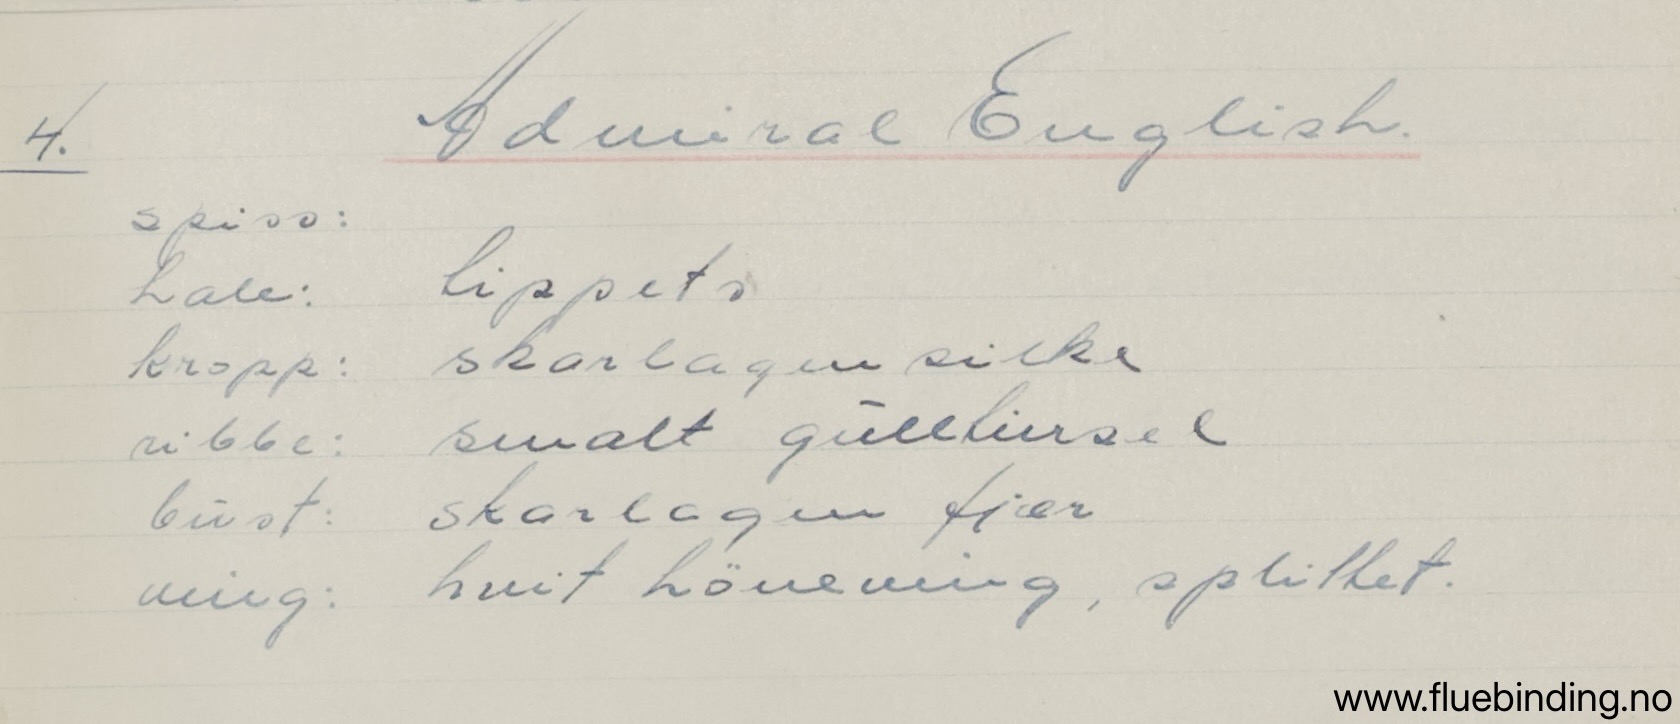 4. Admiral English.
spiss:
hale: tippets
kropp: skarlagen silke
ribbe: smalt gūlltinsel
būst: skarlagen fjær
ving: hvit höneving, splittet.
www.fluebinding.no